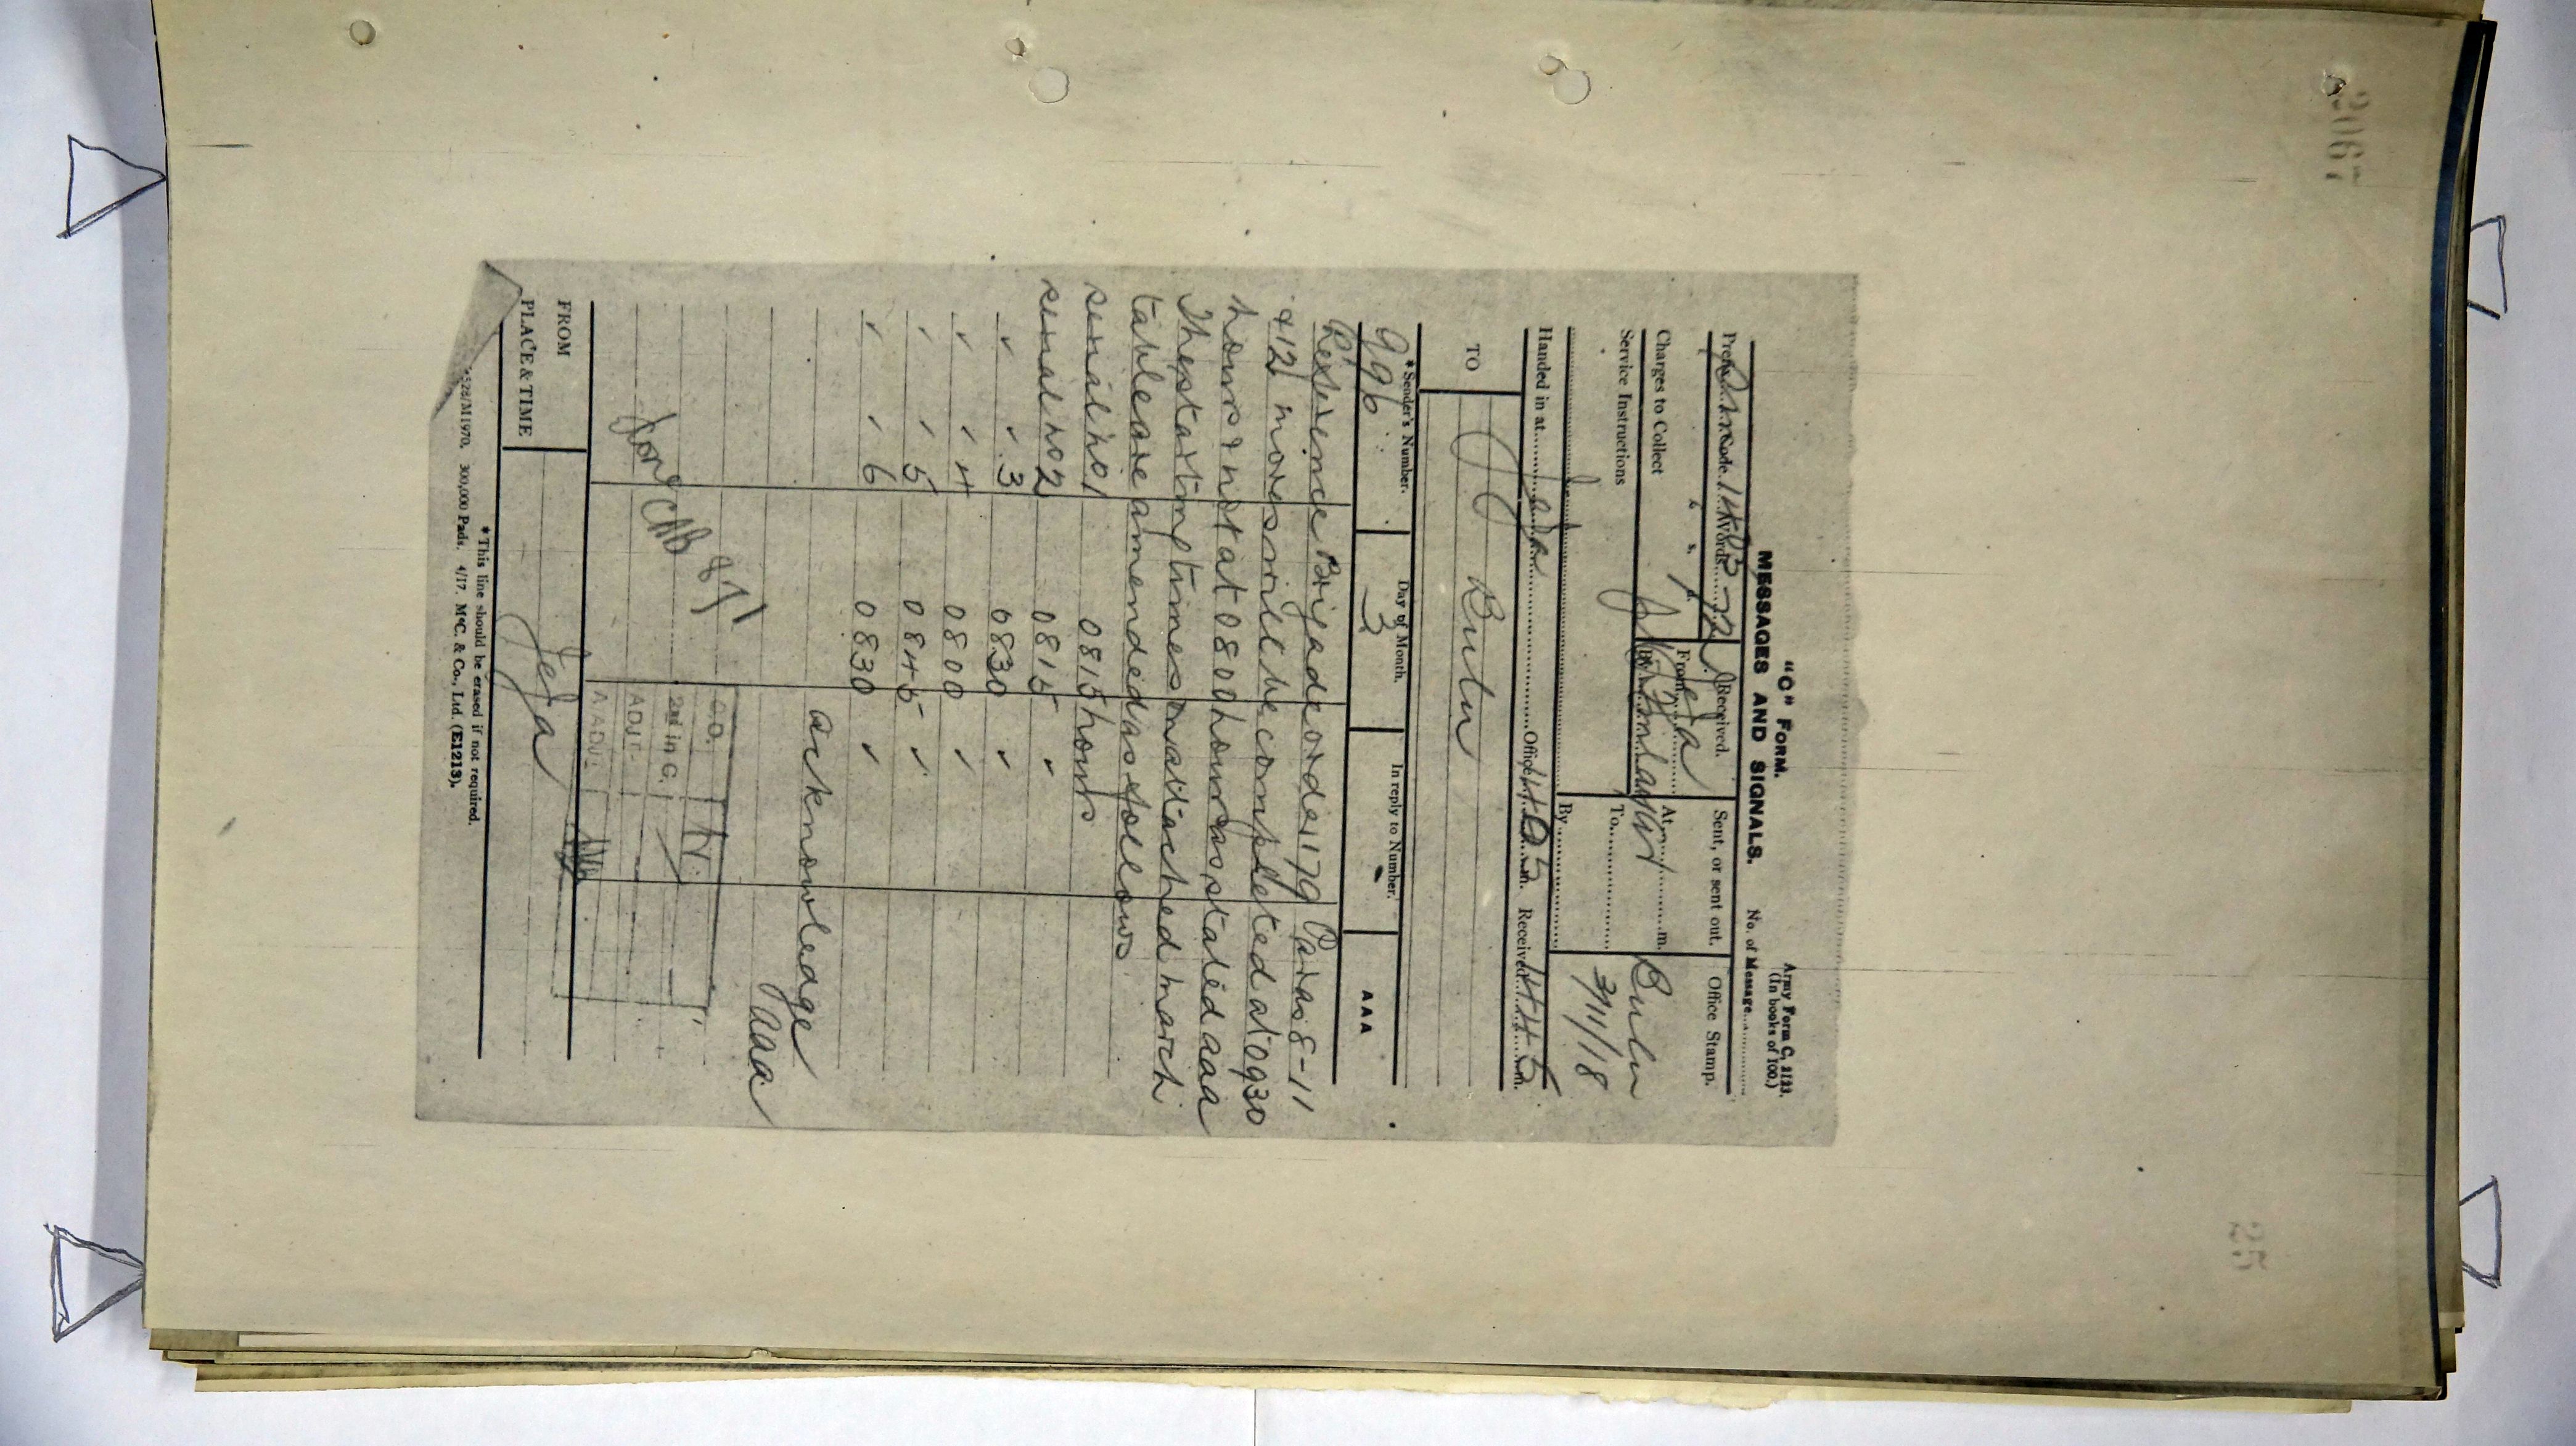 "C" FORM.
MESSAGES AND SIGNALS.
Army Form C, 2123.
(In books of 100.)
No. of Message
Prefix Code 1403 Words 72
Received.
From Jeja
By
Sent, or sent out.
At m.
To
By
Office Stamp.
Bulu
3/11/18
Charges to Collect
Service Instructions
Handed in at Jeja Office 1405 m. Received 1445 m.
TO Bulu
*Sender's Number.
Day of Month.
In reply to Number.
AAA
996
3
Reference Brigade order 179 Paras 8-11
& 12 moves will be completed at 0930
hours & not at 0800 hours as stated aaa
The starting times on attached march
table are amended as follows
serial no 1 0815 hours
serial no 2 0815 "
" " 3 0830 "
" " 4 0800 "
" " 5 0845 "
" " 6 0830 "
acknowledge
aaa
C.O.
2nd in C.
ADJT
A ADJT
FROM
PLACE & TIME
Jeja
*This line should be erased if not required.
/M1970. 300,000 Pads. 4/17. McC. & Co., Ltd. (E1213).
3067
25